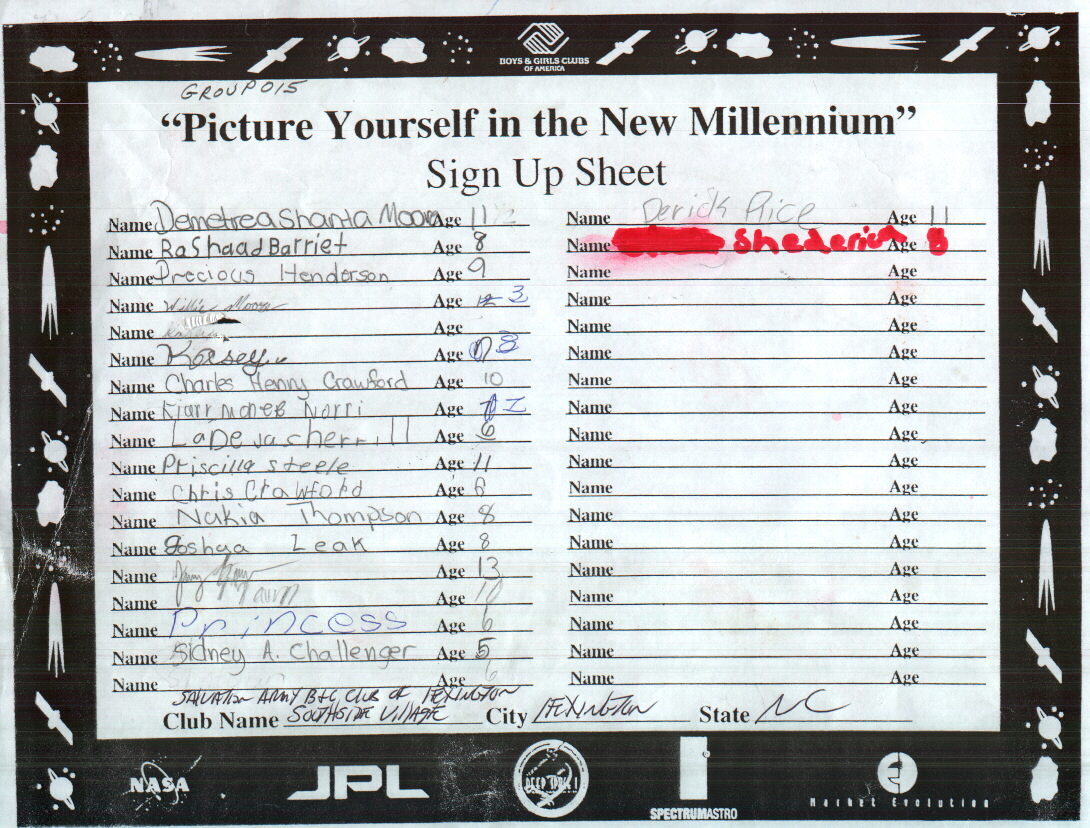 BOYS & GIRLS CLUBS
OF AMERICA
GROUP 015
"Picture Yourself in the New Millennium"
Sign Up Sheet
Name Demetrea Shanta Moore Age 11
Name RaShaad Barriet Age 8
Name Precious Henderson Age 9
Name Willie Moore Age 3
Name Age
Name Korsey Age 8
Name Charles Henry Crawford Age 10
Name Norri Age
Name Age 6
Name Priscilla Steele Age 11
Name Chris Crawford Age 8
Name Nakia Thompson Age 8
Name Joshaa Leak Age 8
Name Age 13
Name Age 10
Name Princess Age 6
Name Sidney A. Challenger Age 5
Name Age 6
Name Derick Price Age 11
Name Shederick Age 8
Name Age
Name Age
Name Age
Name Age
Name Age
Name Age
Name Age
Name Age
Name Age
Name Age
Name Age
Name Age
Name Age
Name Age
Name Age
Name Age
SALVATION ARMY B+G CLUB OF LEXINGTON
Club Name SOUTHSIDE VILLAGE City LEXINGTON State NC
NASA
JPL
DEEP SPACE 1
SPECTRUMASTRO
Market Evolution